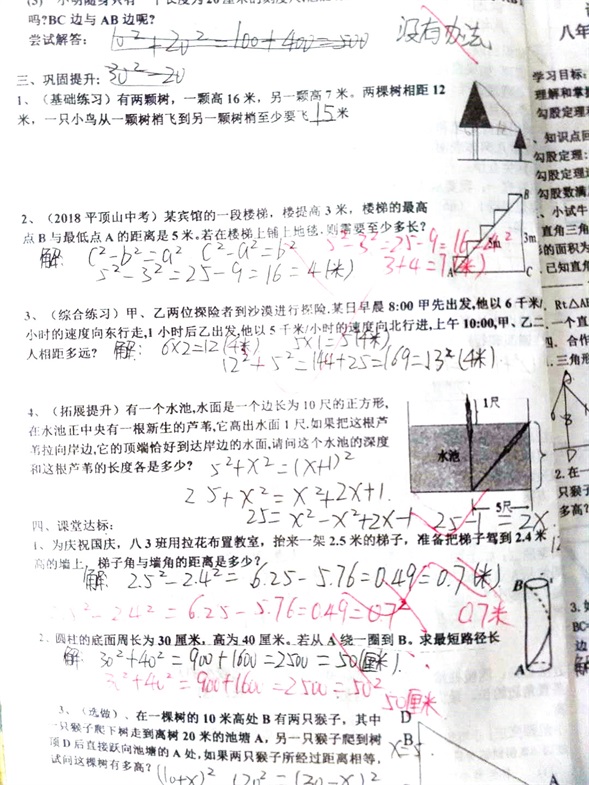 吗?BC边与AB边呢?
尝试解答: 10²+20²=100+400=500 没有办法
三、巩固提升: 30²-20
1、（基础练习）有两颗树，一颗高16米，另一颗高7米。两棵树相距12
米，一只小鸟从一颗树梢飞到另一颗树梢至少要飞15米
2、（2018平顶山中考）某宾馆的一段楼梯，楼提高3米，楼梯的最高
点B与最低点A的距离是5米。若在楼梯上铺上地毯，则需要至少多长?
解: C²-b²=a² C²-a²=b² 5²-3²=25-9=16=4²
5²-3²=25-9=16=4(米) 3+4=7(米)
B
5m
3m
A
C
3、（综合练习）甲、乙两位探险者到沙漠进行探险.某日早晨8:00甲先出发,他以6千米/
小时的速度向东行走,1小时后乙出发,他以5千米/小时的速度向北行进,上午10:00,甲、乙二
人相距多远? 解: 6×2=12(千米) 5×1=5(千米)
12²+5²=144+25=169=13²(千米).
4、（拓展提升）有一个水池,水面是一个边长为10尺的正方形,
在水池正中央有一根新生的芦苇,它高出水面1尺,如果把这根芦
苇拉向岸边,它的顶端恰好到达岸边的水面,请问这个水池的深度
和这根芦苇的长度各是多少? 5²+X²=(X+1)²
25+X²=X²+2X+1.
25=X²-X²+2X-1 25-1=2X
1尺
水池
5尺
四、课堂达标:
1、为庆祝国庆，八3班用拉花布置教室，抬来一架2.5米的梯子，准备把梯子驾到2.4米
高的墙上，梯子角与墙角的距离是多少?
解: 2.5²-2.4²=6.25-5.76=0.49=0.7(米)
2.5²-2.4²=6.25-5.76=0.49=0.7² 0.7米
2、圆柱的底面周长为30厘米，高为40厘米。若从A绕一圈到B。求最短路径长
解: 30²+40²=900+1600=2500=50(厘米).
30²+40²=900+1600=2500=50²
50厘米
B
A
3、（选做）、在一棵树的10米高处B有两只猴子，其中
一只猴子爬下树走到离树20米的池塘A，另一只猴子爬到树
顶D后直接跃向池塘的A处,如果两只猴子所经过距离相等,
试问这棵树有多高?
D
B
X=5
A
八年
学习目标:
理解和掌握
勾股定理
知识点回
勾股定理:
勾股定理
勾股数满
、小试牛
直角三角
的面积为
已知直角
Rt△AB
一个直
合作
三角形
2.在一
只猴子
多高?